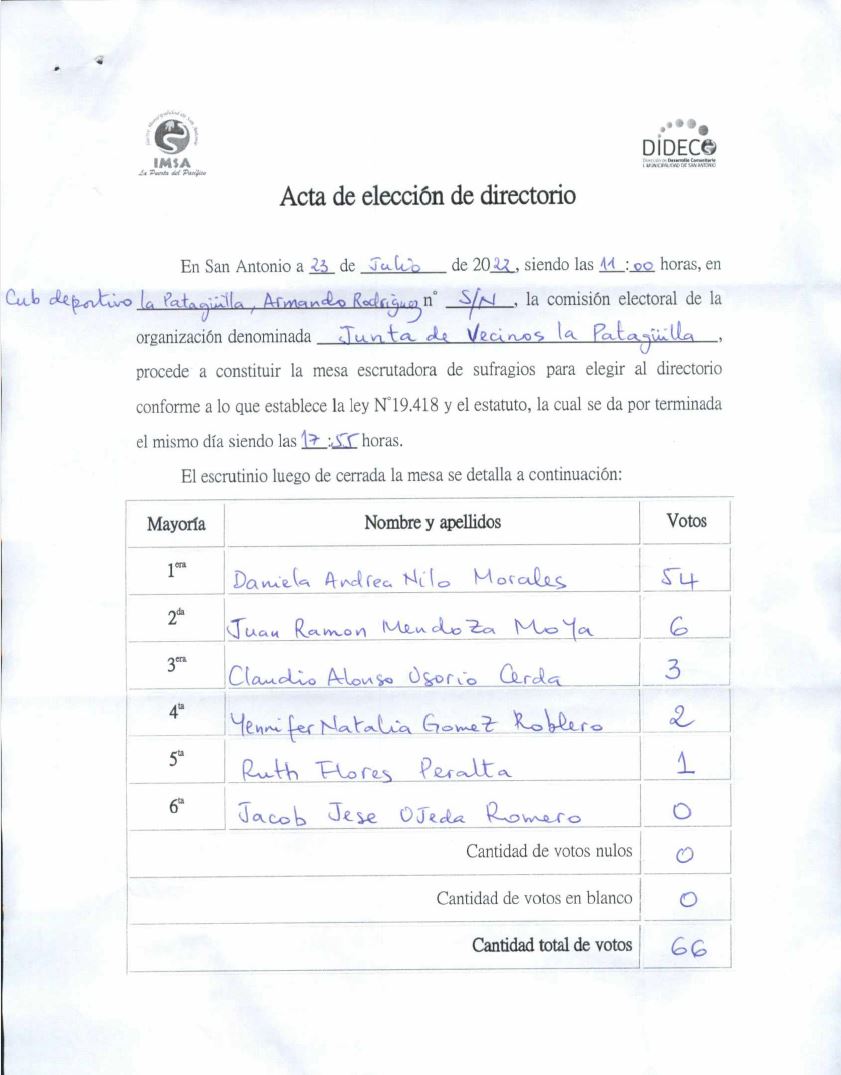 IMSA
La Puerta del Pacífico
DIDECO
Dirección de Desarrollo Comunitario
I. MUNICIPALIDAD DE SAN ANTONIO
Acta de elección de directorio
En San Antonio a 23 de Julio de 2022, siendo las 11:00 horas, en
Cub deportivo la Patagüilla, Armando Rodriguez n° S/N, la comisión electoral de la
organización denominada Junta de Vecinos la Patagüilla,
procede a constituir la mesa escrutadora de sufragios para elegir al directorio
conforme a lo que establece la ley N°19.418 y el estatuto, la cual se da por terminada
el mismo día siendo las 17:55 horas.
El escrutinio luego de cerrada la mesa se detalla a continuación:
Mayoría Nombre y apellidos Votos
1era Daniela Andrea Nilo Morales 54
2da Juan Ramon Mendoza Moya 6
3era Claudio Alonso Osorio Cerda 3
4ta Yennifer Natalia Gomez Roblero 2
5ta Ruth Flores Peralta 1
6ta Jacob Jese OJeda Romero 0
Cantidad de votos nulos 0
Cantidad de votos en blanco 0
Cantidad total de votos 66